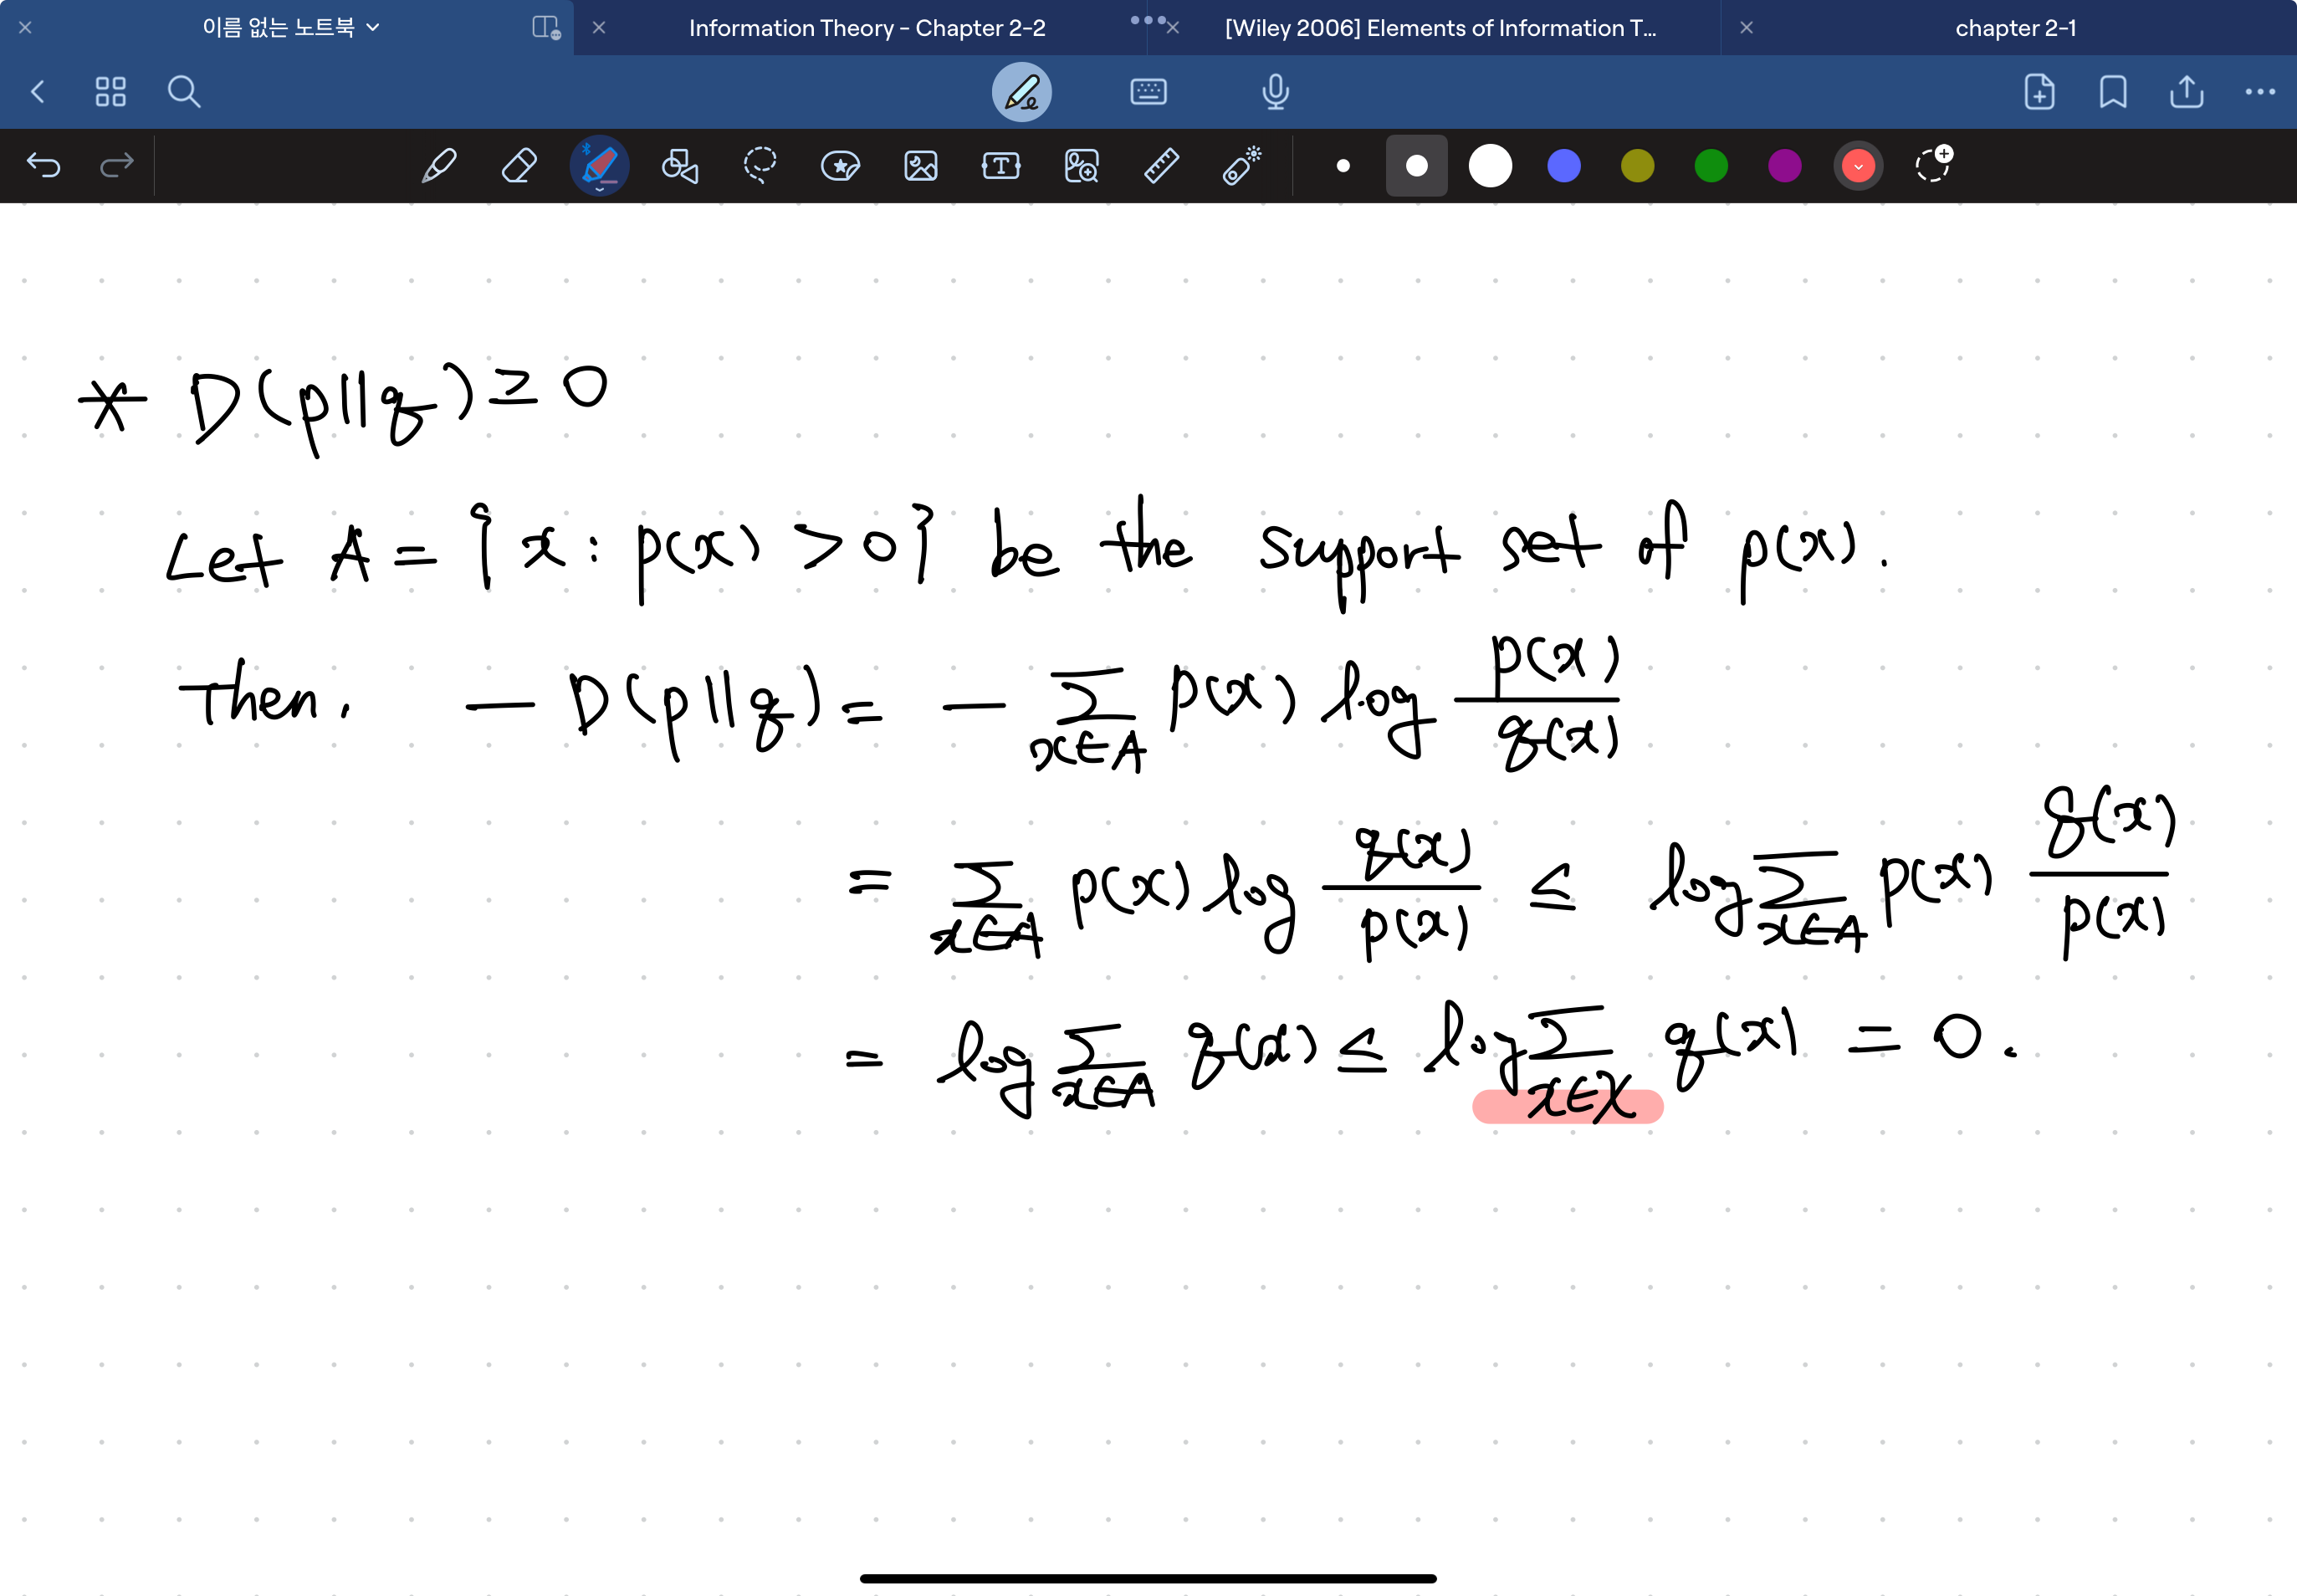 이름 없는 노트북
Information Theory - Chapter 2-2
[Wiley 2006] Elements of Information T...
chapter 2-1
* D(p||q) ≥ 0
Let A = {x : p(x) > 0} be the support set of p(x).
Then. − D(p||q) = − ∑_{x∈A} p(x) log p(x)/q(x)
= ∑_{x∈A} p(x) log q(x)/p(x) ≤ log ∑_{x∈A} p(x) q(x)/p(x)
= log ∑_{x∈A} q(x) ≤ log ∑_{x∈X} q(x) = 0.